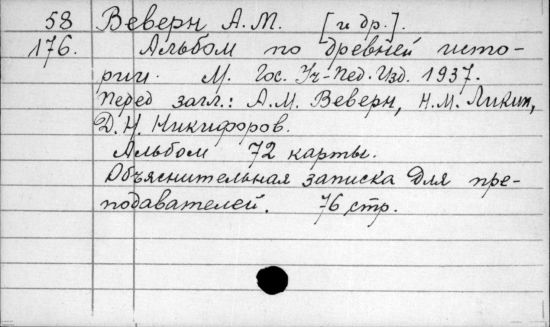 58 Веверн А.М. [и др.].
176. Альбом по древней исто-
рии. М. Гос. Уч-Пед. Изд. 1937.
Перед загл.: А.М. Веверн, Н.М. Ликин,
Д.Н. Никифоров.
Альбом 72 карты.
Объяснительная записка для пре-
подавателей. 76 стр.